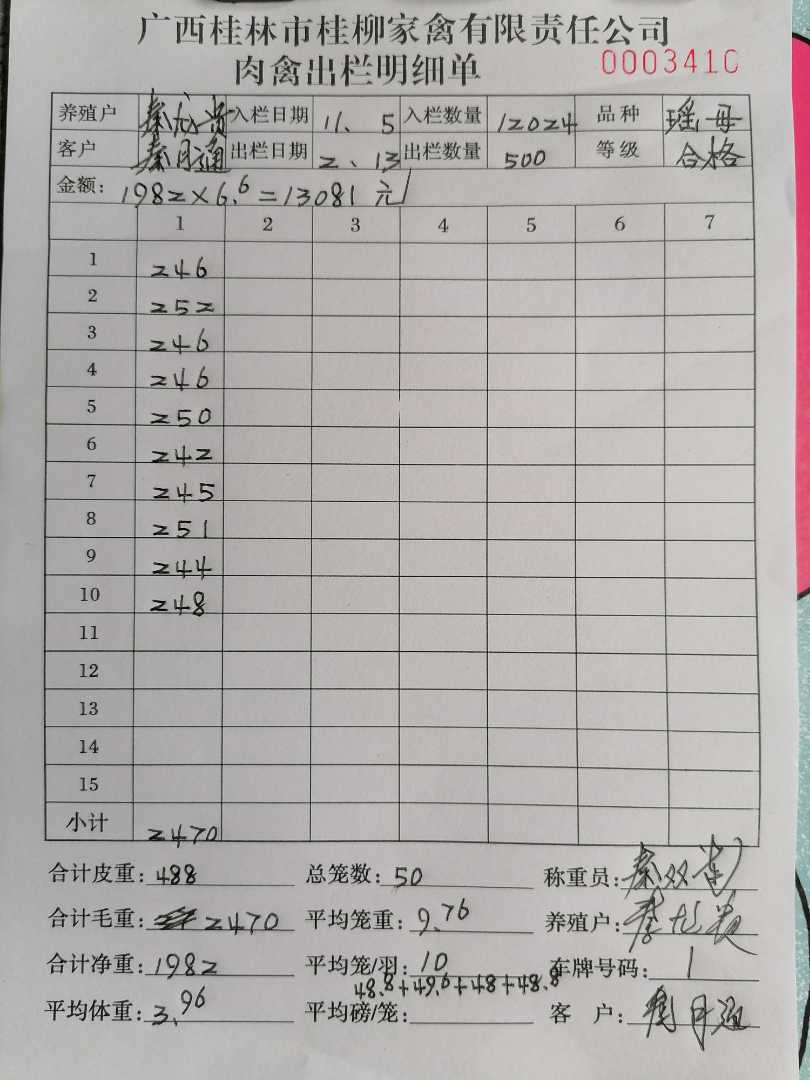 广西桂林市桂柳家禽有限责任公司
肉禽出栏明细单 0003410
养殖户 入栏日期 11、5 入栏数量 12024 品种 瑶、母
客户 秦月通 出栏日期 2、13 出栏数量 500 等级 合格
金额: 1982×6.6=13081元
1 2 3 4 5 6 7
1 246
2 252
3 246
4 246
5 250
6 242
7 245
8 251
9 244
10 248
11
12
13
14
15
小计 2470
合计皮重: 488 总笼数: 50 称重员:
合计毛重: 2470 平均笼重: 9.76 养殖户:
合计净重: 1982 平均笼/羽: 10 车牌号码: 1
48.8+49.6+48+48.8
平均体重: 3.96 平均磅/笼: 客户: